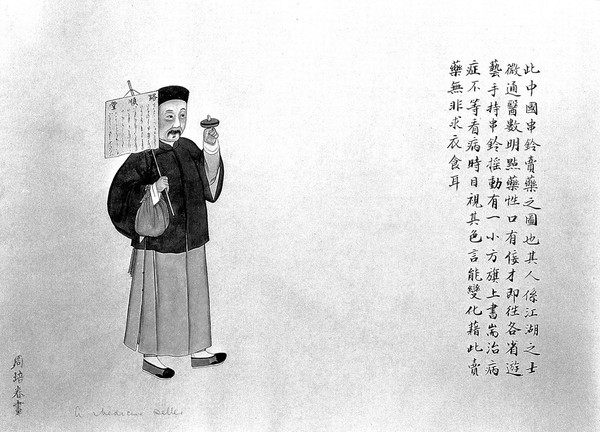 此中國串鈴賣藥之圖也其人係江湖之士
微通醫數明點藥性口有佞才即往各省遊
藝手持串鈴搖動有一小方旗上書耑治病
症不等看病時目視其色言能變化藉此賣
藥無非求衣食耳
路順堂
周培春畫
A medicine seller